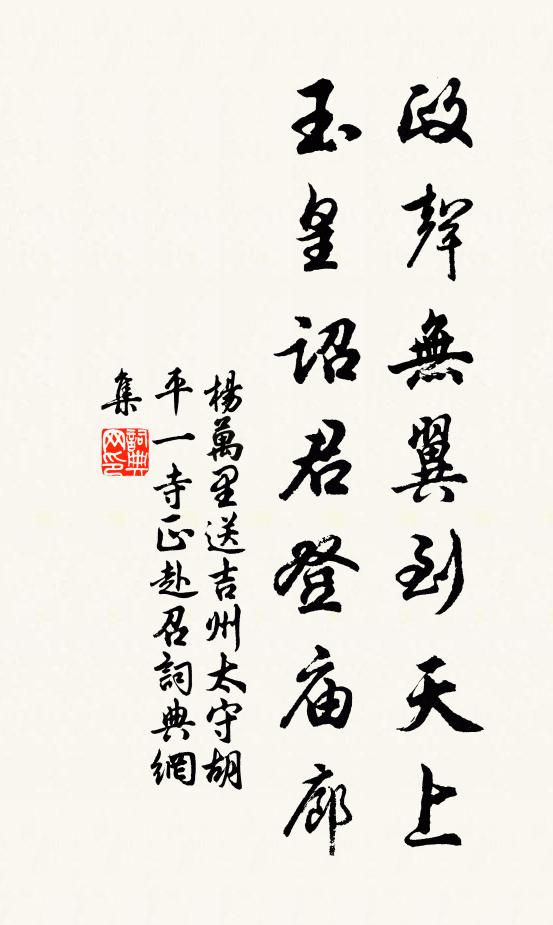 政聲無翼到天上
玉皇詔君登庙廊
楊萬里送吉州太守胡
平一寺正赴召詞典網
集
詞典
网印